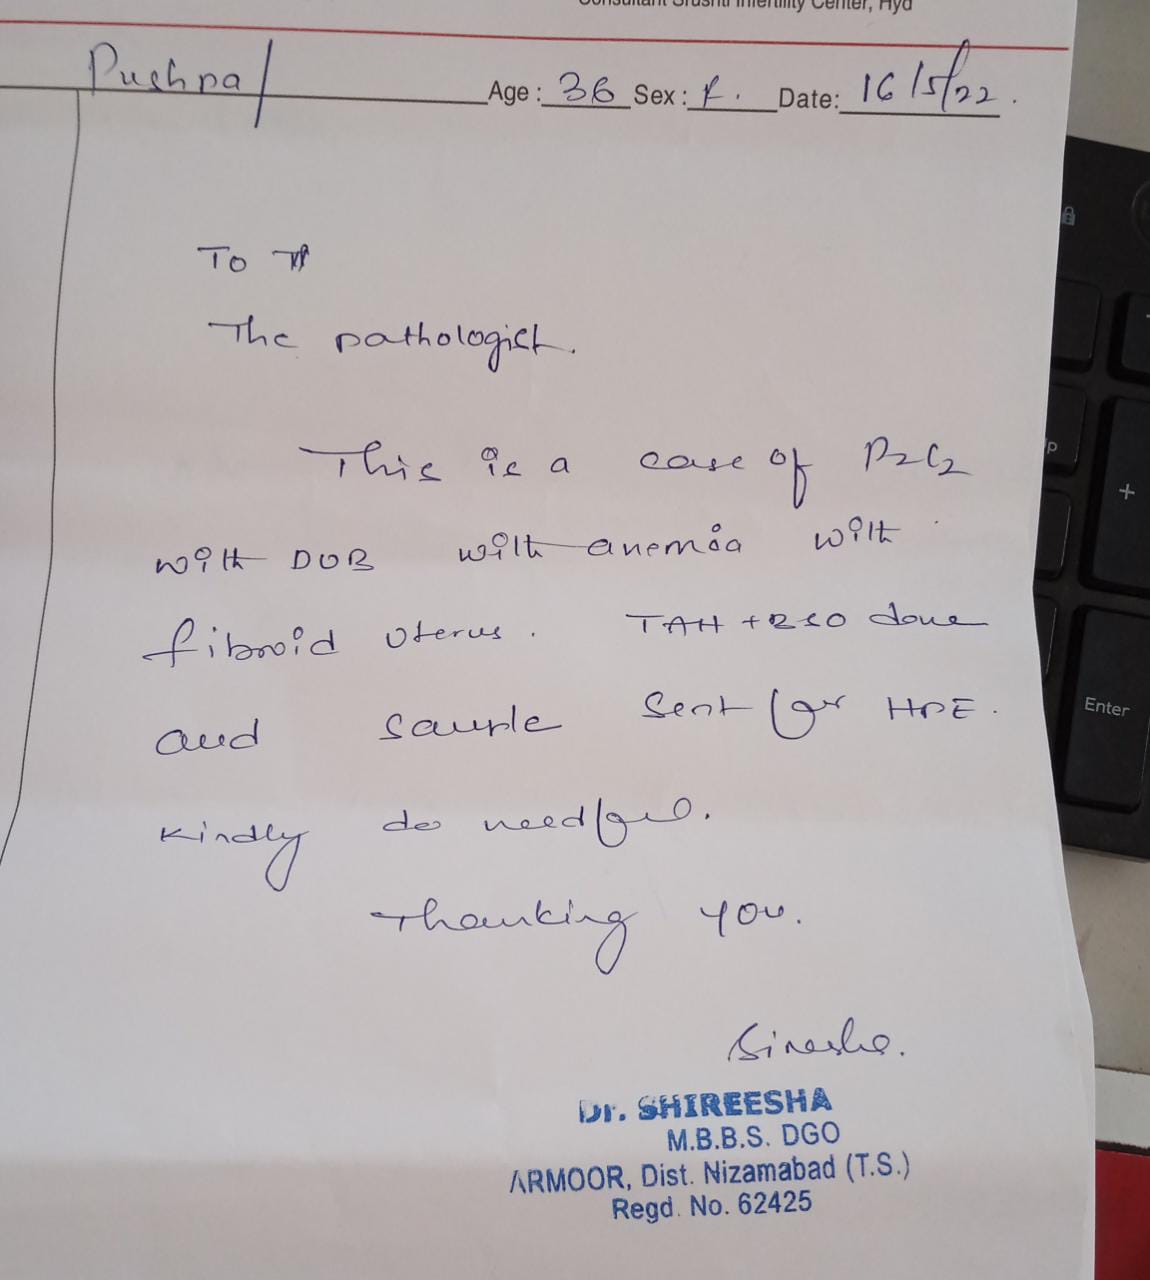 Consultant Srushti Infertility Center, Hyd
Pushpa Age : 36 Sex : F. Date: 16/5/22.
To
The pathologist.
This is a case of P2L2
with DUB with anemia with
fibroid uterus. TAH + BSO done
and sample sent for HPE.
Kindly do needful.
Thanking you.
Sireesha.
Dr. SHIREESHA
M.B.B.S. DGO
ARMOOR, Dist. Nizamabad (T.S.)
Regd. No. 62425
+
Enter